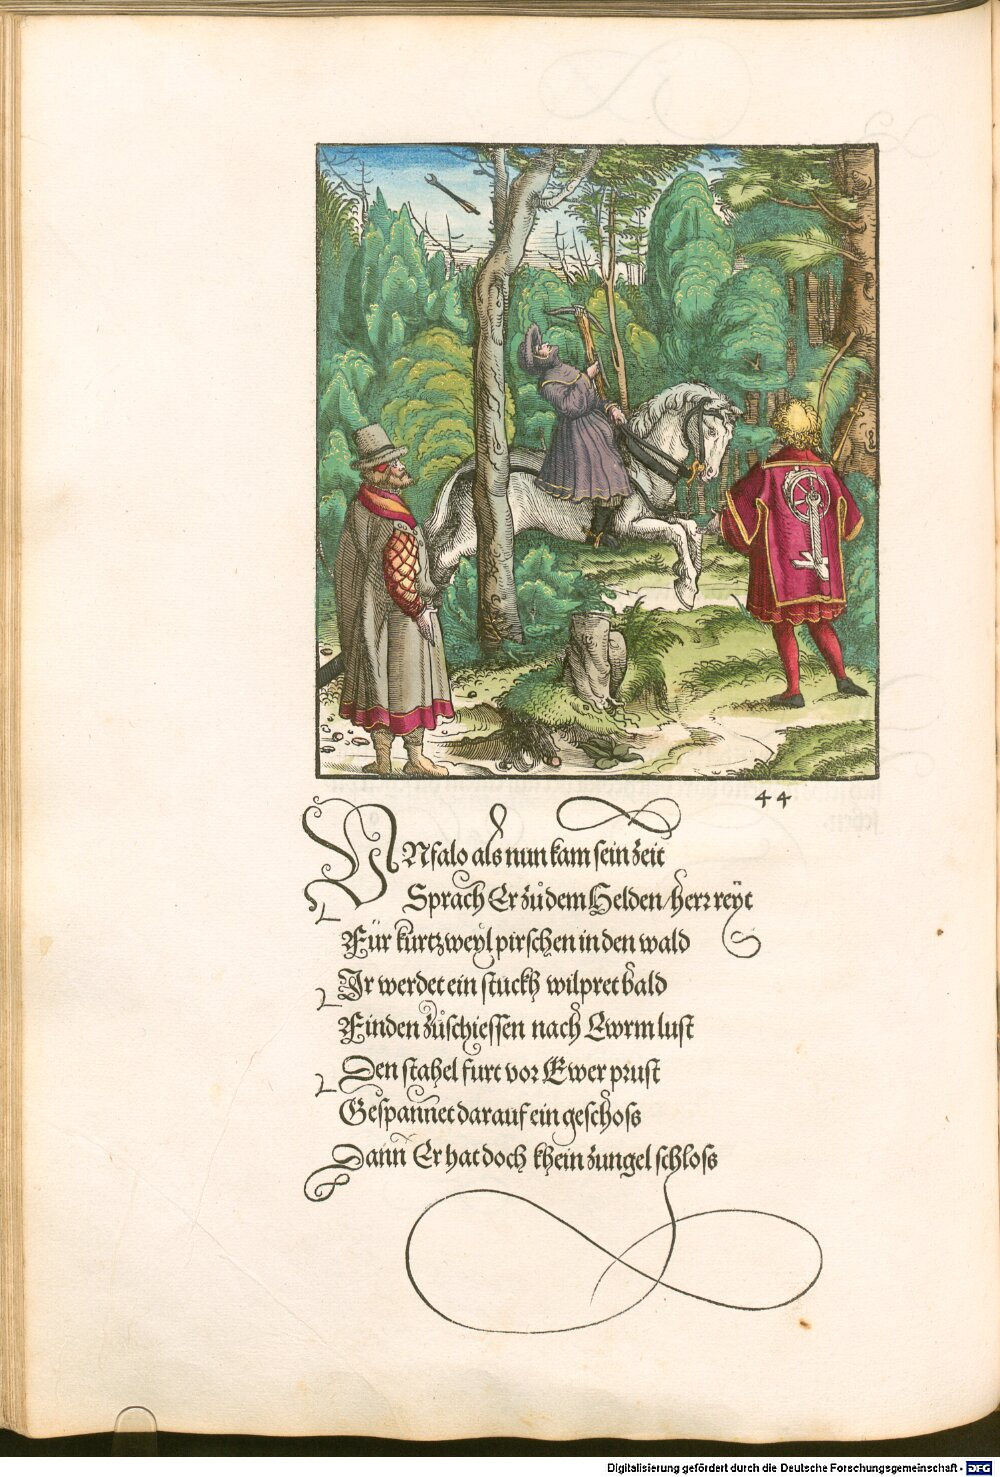 44
VNfalo als nun kam sein zeit
Sprach Er zů dem Helden/herr reyt
Für kurtzweyl pirschen in den wald
Ir werdet ein stuckh wilpret bald
Finden zůschiessen nach Ewrm lust
Den stahel furt vor Ewer prust
Gespannet darauf ein geschoss
Dann Er hat doch khein zungel schloss
Digitalisierung gefördert durch die Deutsche Forschungsgemeinschaft - DFG